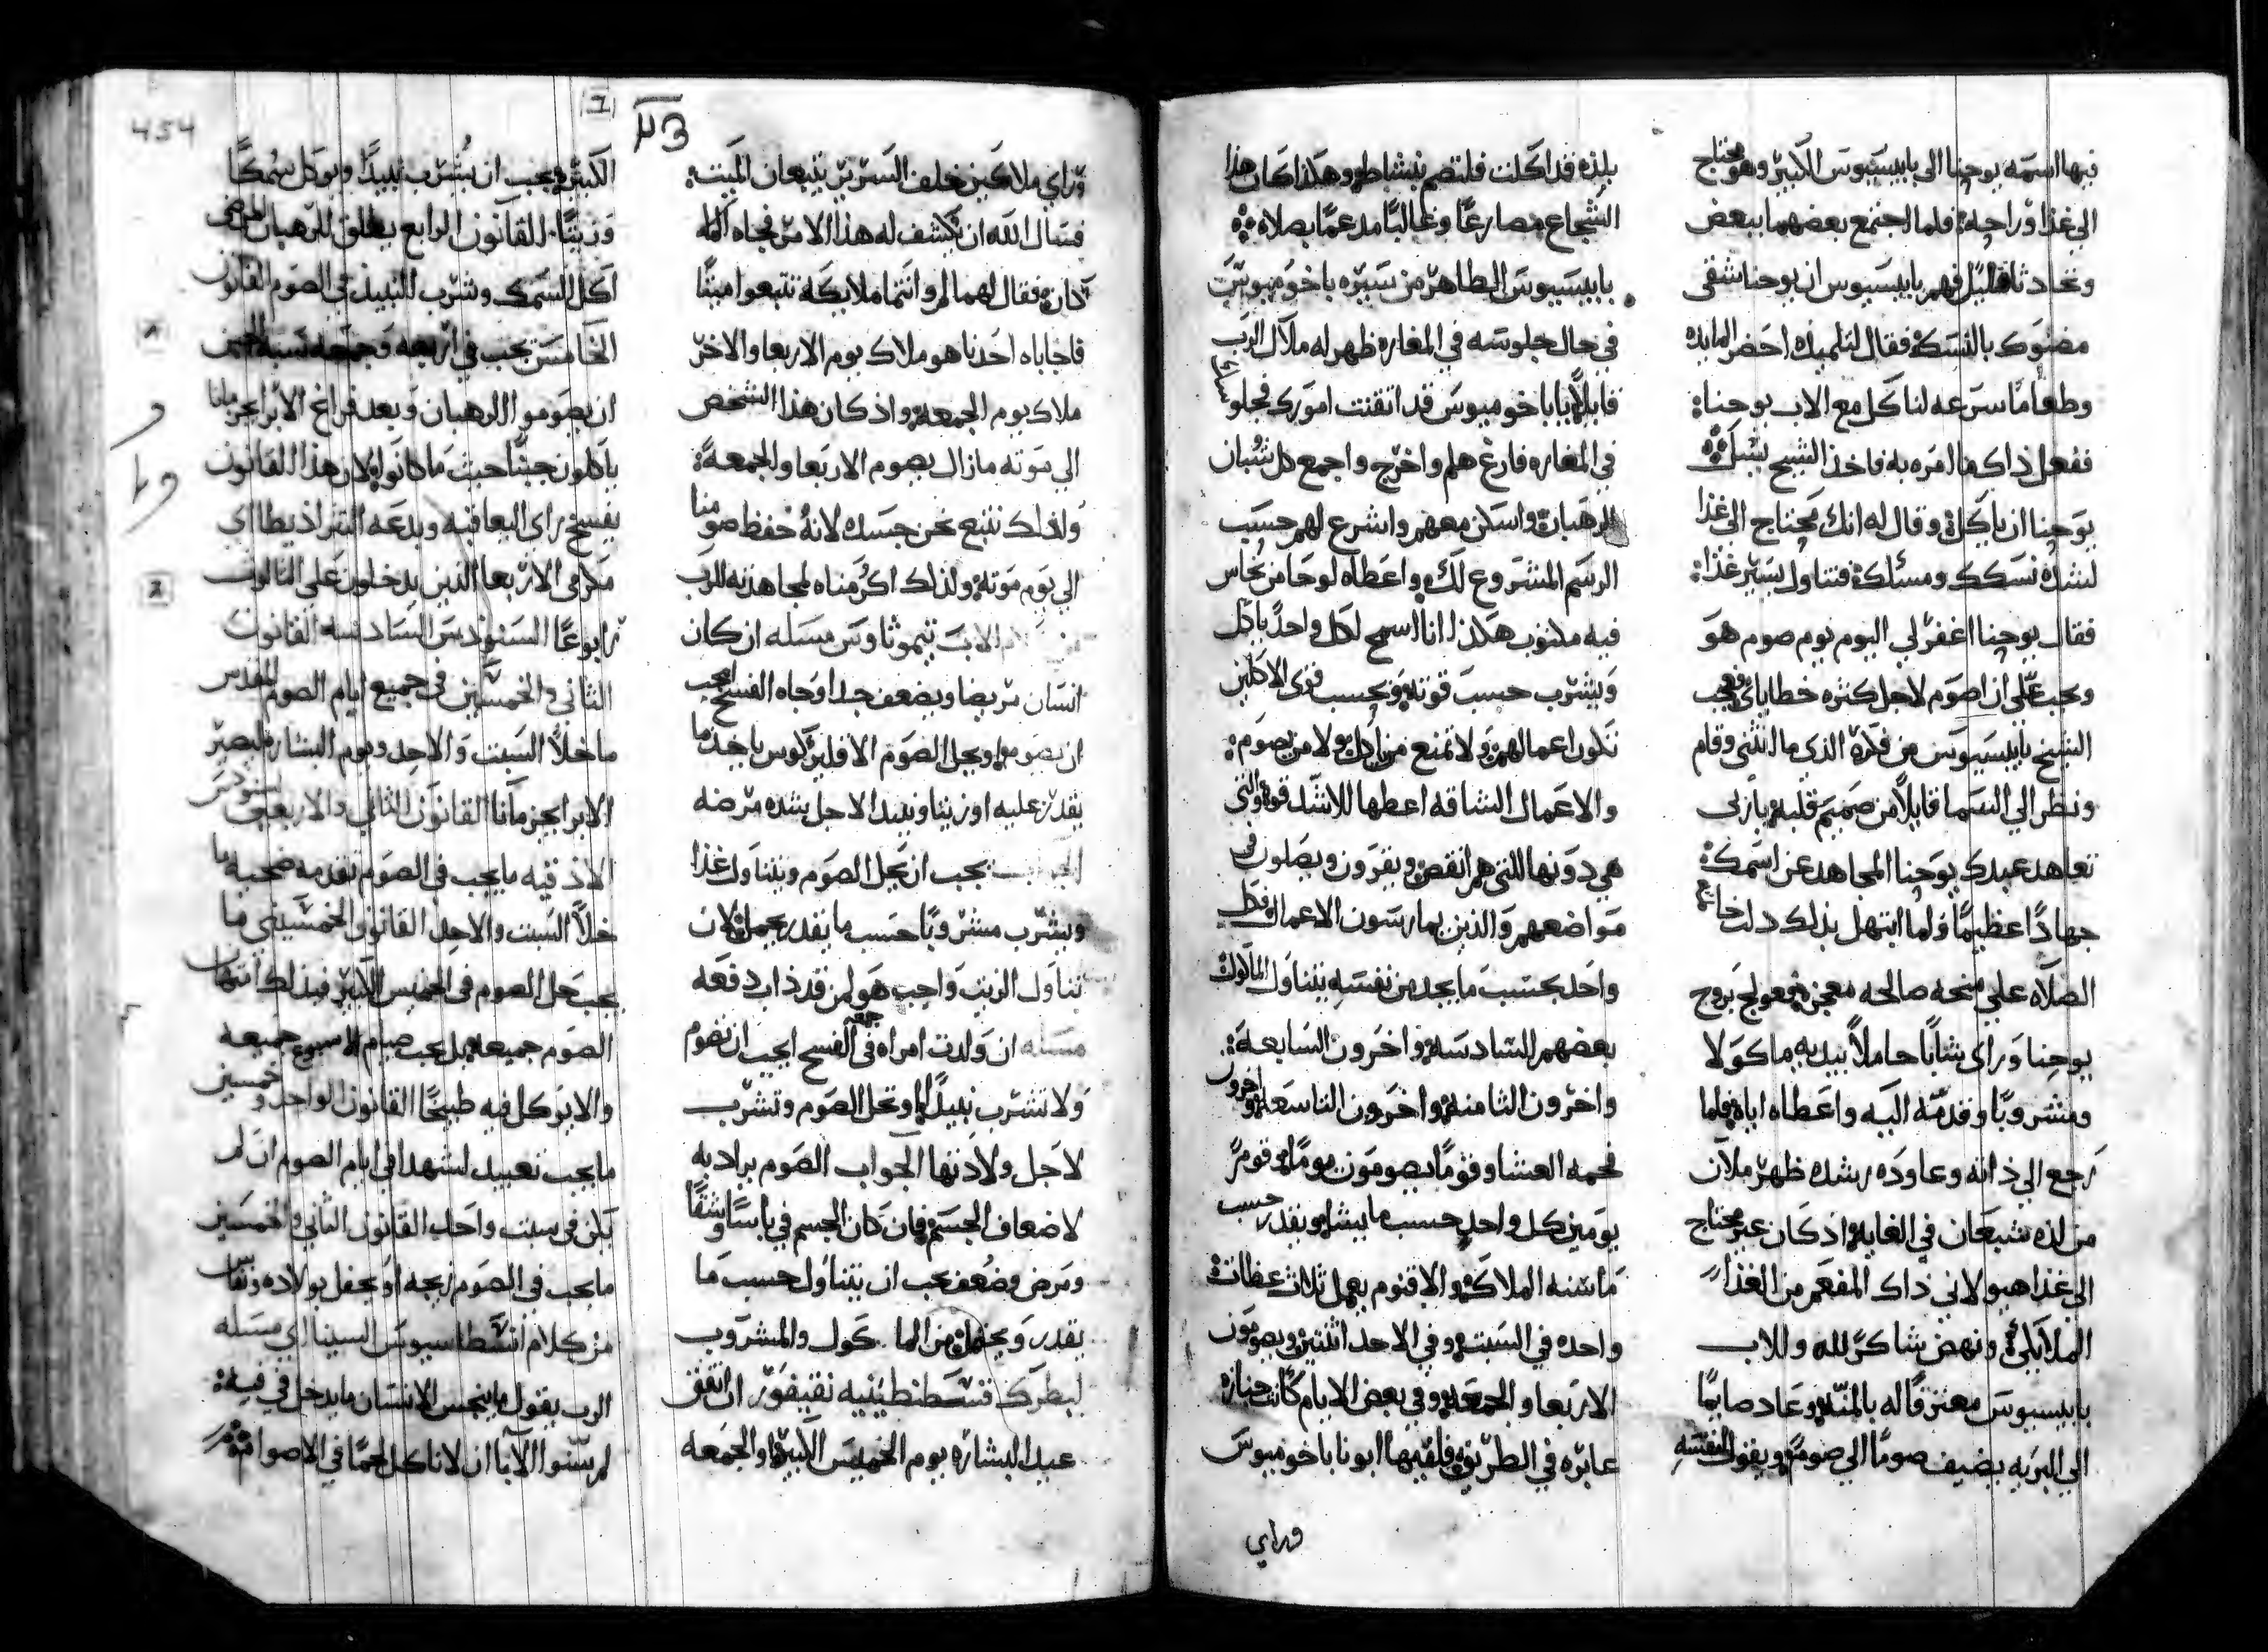 فيها اسمه يوحنا الي باييسيوس الكبير وهو محتاج
الي غذا وراحه فلما اجتمع بعضهما ببعض
وتحادثا قليل فهم باييسيوس ان يوحنا شقي
مضنوك بالنسك فقال لتلميذه احضر المايده
وطعاما سرعه لناكل مع الاب يوحنا
ففعل ذاك ما امره به فاخذ الشيخ يسل
يوحنا ان ياكل وقال له انك محتاج الي غذا
لشده نسكك ومسكك فتناول يسير غذا
فقال يوحنا اغفر لي اليوم يوم صوم هو
ويجب علي ان اصوم لاجل كثره خطاياي فعجب
الشيخ باييسيوس من فكره الذي ما انثني وقام
ونظر الي السما قايلا من صميم قلبه يا رب
تعاهد عبدك يوحنا المجاهد عن اسمك
جهادا عظيما ولما ابتهل بذلك
الصلاه علي منحه صالحه معجزه فعولج بروح
يوحنا وراي شابا حاملا بيديه ماكولا
ومشروبا وقدمه اليه واعطاه اياه فلما
رجع الي ذاته وعاوده رشده ظهر ملان
من لذه شبعان في الغايه اذ كان غير محتاج
الي غذا هيولاني ذاك المفعم من الغذا
الملايكي ونهض شاكرا لله وللاب
باييسيوس معترفا له بالمنه وعاد صايما
الي البريه يضيف صوما الي صوم ويقول لنفسه
بلذه قد اكلت فلتصم بنشاط وهكذا كان هذا
الشجاع مصارعا وغالبا مدعما بصلاه
باييسيوس الطاهر من سيره باخوميوس
في حال جلوسه في المغاره ظهر له ملاك الرب
قايلا يا باخوميوس قد اتقنت امورك فجلوسك
في المغاره فارغ هلم واخرج واجمع كل شبان
الرهبان واسكن معهم واشرع لهم حسب
الرسم المشروع لك واعطاه لوحا من نحاس
فيه مكتوب هكذا انا اسمح لكل واحد ياكل
ويشرب حسب قوته وبحسب قوي الاكلين
تكون اعمالهم ولا تمنع من اكل ولا من يصوم
والاعمال الشاقه اعطها للاشد قوه والتي
هي دونها للتي هم انقص ويقرون ويصلون في
مواضعهم والذين يمارسون الاعمال فكل
واحد بحسب ما يجد من نفسه يتناول الماكول
بعضهم السادسه واخرون السابعه
واخرون الثامنه واخرون التاسعه واخرون
فحمه العشا وقوما يصومون يوما وقوم
يومين كل واحد حسب ما يشا ويقدر حسب
ما سنه الملاك والاقنوم يعمل ثلاث عظات
واحده في السبت وفي الاحد اثنتين ويصومون
الاربعا والجمعه وفي بعض الايام كانت جنازه
عابره في الطريق فلقيها ابونا باخوميوس
وراي
454
وراي ملاكين خلف السرير يتبعان الميت
فسال الله ان يكشف له هذا الامر فجاه
فقال لهما لم وانتما ملايكه تتبعوا ميتا
فاجاباه احدنا هو ملاك يوم الاربعا والاخر
ملاك يوم الجمعه واذ كان هذا الشخص
الي موته مازال يصوم الاربعا والجمعه
ولذلك نتبع نحن جسده لانه حفظ صومنا
الي يوم موته ولذلك اكرمناه لمجاهدته للرب
الاب تيموثاوس مساله ان كان
انسان مريضا ويضعف جدا وجاه الفسح ايجب
ان يصوم او يحل الصوم
يقدر عليه او زيتا ونبيدا لاجل شده مرضه
الجواب يجب ان يحل الصوم ويتناول غذا
ويشرب مشروبا حسب ما يقدر يحمل لان
تناول الزيت واجب هو لمن قد ذاب دفعه
مساله ان ولدت امراه في جمعه الفسح ايجب ان تصوم
ولا تشرب نبيدا او تحل الصوم وتشرب
لاجل ولادتها الجواب الصوم يراد به
لاضعاف الجسم فان كان الجسم في باسا وشقا
ومرض وضعف يجب ان يتناول حسب ما
يقدر ويحتمل من الماكول والمشروب
لبطرك قسطنطينيه نقيفور ان اتفق
عيد البشاره يوم الخميس الكبير او الجمعه
الكبيره يجب ان يشرب نبيدا ويوكل سمكا
وزيتا القانون الرابع يطلق للرهبان المرضي
اكل السمك وشرب النبيذ في الصوم القانون
الخامس يجب في اربعه وجمعه نسبه الجبن
ان يصوموا الرهبان وبعد فراغ الابراجزمانا
ياكلون جبنا حيث ما كانوا لان هذا القانون
يفسخ راي اليعاقبه وبدعه التتراذيطا اي
ملازمي الاربعا الذين يدخلون علي الثالوث
رابوعا السنودس السادسه القانون
الثاني والخمسين في جميع ايام الصوم المقدس
ما خلا السبت والاحد ويوم البشاره ليصير
الابراجزمانا القانون الثاني والاربعين سنودس
الاذقيه ما يجب في الصوم تقدمه ضحيه ما
خلا السبت والاحد القانون الخمسين ما
يجب حل الصوم في الخميس الكبير فبذلك انتهان
الصوم جميعه بل يجب صيام الاسبوع جميعه
والا يوكل فيه طبيخا القانون الواحد وخمسين
ما يجب تعييد لشهدا في ايام الصوم ان لم
يكن في سبت واحد القانون الثاني والخمسين
ما يجب في الصوم زيجه او يحفل بولاده ونفاس
من كلام انسطاسيوس السيناي مسله
الرب يقول ما ينجس الانسان ما يدخل في فيه
لم رسموا الابا ان لا ناكل لحما في الاصوام